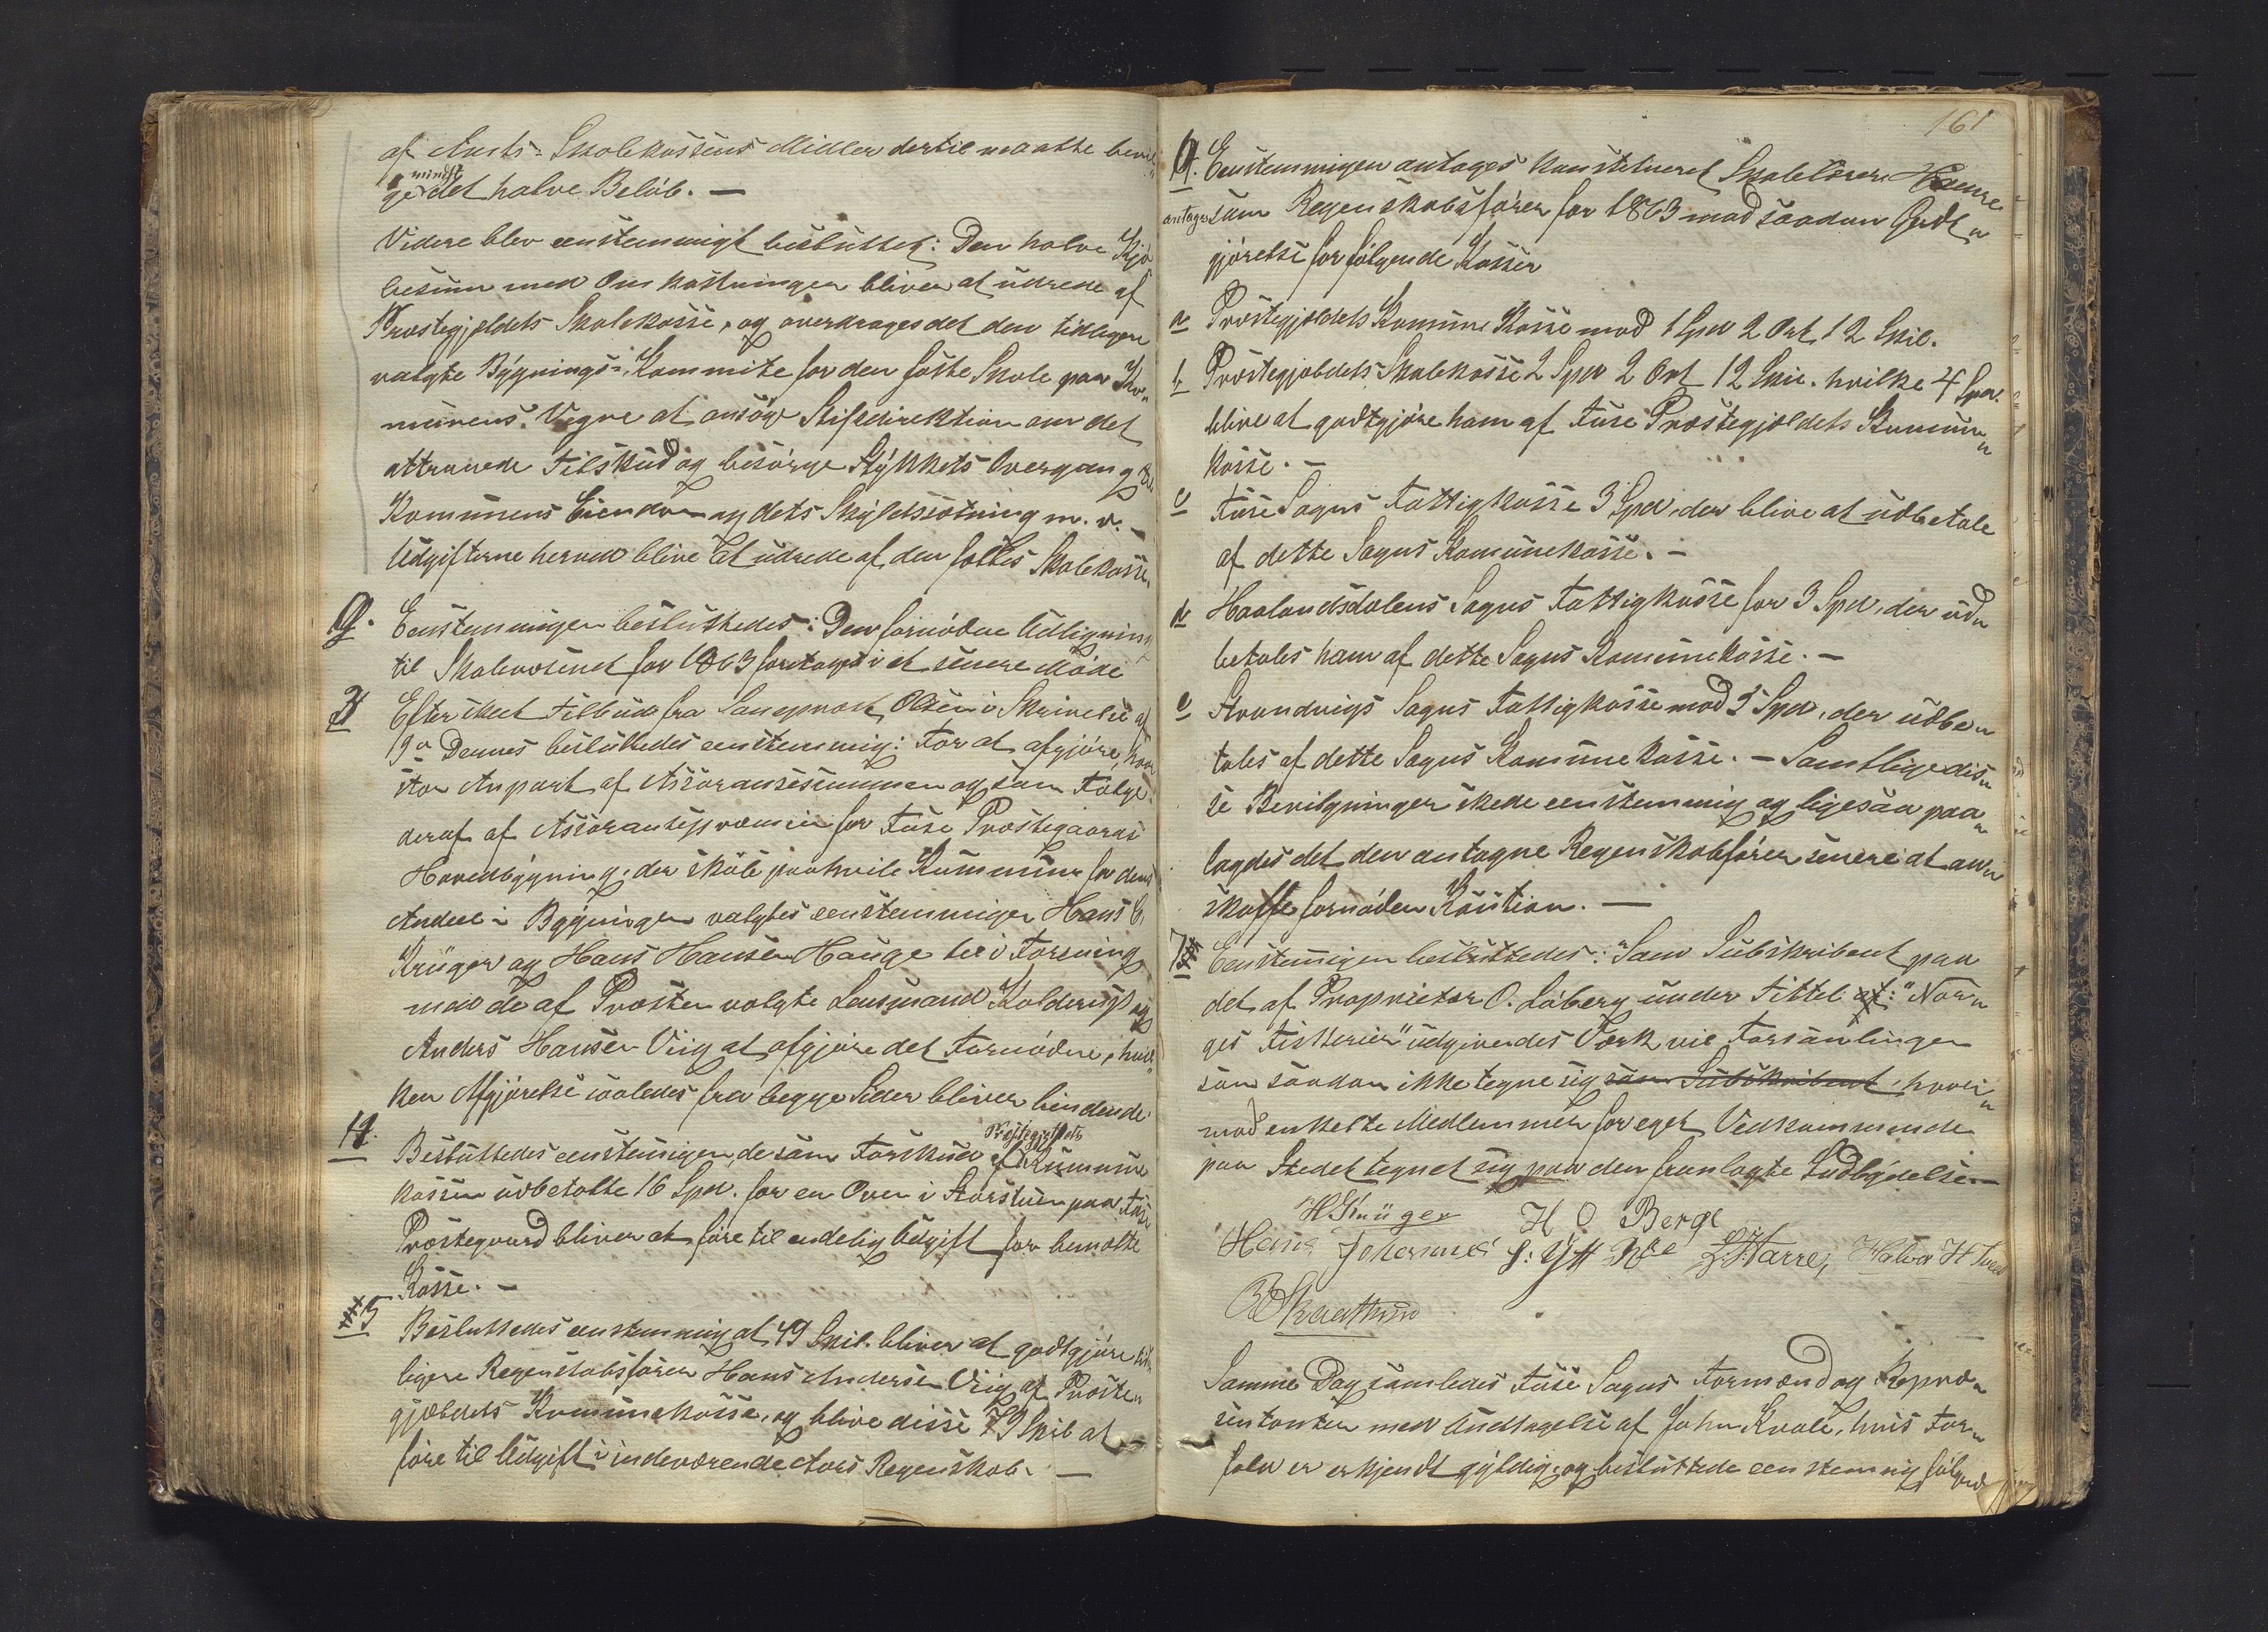 af Amts-Skolekassens Midler dertil maatte bevil-
ge mindst det halve Beløb. —
Videre blev eenstemmigt besluttet: Den halve Kjø-
besum med Omkostninger bliver at udrede af
Præstegjeldets Skolekasse, og overdrages det den tidligere
valgte Bygnings-Kommite for den faste Skole paa Ko-
munens Vegne at ansøge Stiftsdirektion om det
attraaede Tilskud og besørge Stykkets Overgang til
Kommunens Eiendom og dets Skyldsætning m. v. —
Udgifterne herved blive at udrede af den fattes Skolekasse
2. Eenstemmigen besluttedes: Den fornødne Udligning
til Skolevæsenet for 1863 foretages i et senere Møde
3 Efter skeet Tilbud fra Sognepræst Olsen i Skrivelse af
19de Dennes besluttedes eenstemmig: For at afgjøre, hvor
stor Anpart af Assuransesummen og som Følge
deraf af Assurantsepræmien for Fuse Præstegaards
Hovedbygning, der skule paahvile Kommunen for dens
Andeel i Bygningen valgtes eenstemmigen Hans C.
Krüger og Hans Hansen Hauge til i Forening
med de af Præsten valgte Lensmand Kolderup og
Anders Hansen Viig at afgjøre det Fornødne, hvil-
ken Afgjørelse saaledes fra begge Sider bliver bindende
4. Besluttedes eenstemigen, de som Forskud af Præstegjeldets Kommune
kassen udbetalte 16 Spd. for en Oven i Storstuen paa Fuse
Præstegaard bliver at føre til endelig Udgift for bemeldte
Kasse. —
5 Besluttedes eenstemmig at 49 Skil. bliver at godtgjøre tid-
ligere Regenskabsfører Hans Andersen Viig af Præste-
gjeldets Kommunekasse, og blive disse 79 Skil at
føre til Udgift i indeværende Aars Regenskab. —
161
6. Eenstemmigen antages konstitueret Skolelærer Hamre
antages som Regenskabsfører for 1863 mod saadan Godt-
gjørelse for følgende Kasser
a Præstegjeldets Komune Kasse mod 1 Spd 2 Ort 12 Skil.
b Præstegjeldets Skolekasse 2 Spd 2 Ort 12 Skil. hvilke 4 Spd.
blive at godtgjøre ham af Fuse Præstegjeldets Kommune-
kasse. —
c Fuse Sogns Fattigkasse 3 Spd, der blive at udbetale
af dette Sogns Komunekasse. —
d Haalandsdalens Sogns Fattigkasse for 3 Spd, der ud-
betales ham af dette Sogns Komunekasse. —
e Strandvigs Sogns Fattigkasse mod 3 Spd, der udbe-
tales af dette Sogns Komunekasse. — Samtlige dis-
se Bevilgninger skede eenstemmig og ligesaa paa-
lagdes det den antagne Regenskabsfører senere at an-
skaffe fornøden Kaution. —
7 Eenstemigen besluttedes: Som Subskribent paa
det af Proprietær O. Løberg under Tittel af: "Nor-
ges Fiskerier" udgivendes Værk vil Forsamlingen
som saadan ikke tegne sig som Subskribent, hvori-
mod enkelte Medlemmer for eget Vedkommende
paa Stedet tegnet sig paa den fremlagte Indbydelse. —
HKrüger H O Berge
Hans Johannes
Samme Dag samledes Fuse Sogns Formænd og Repræ-
sentanter med Undtagelse af John Kvale, hvis For-
fald er erkjendt gyldig, og besluttede eenstemmig følgende